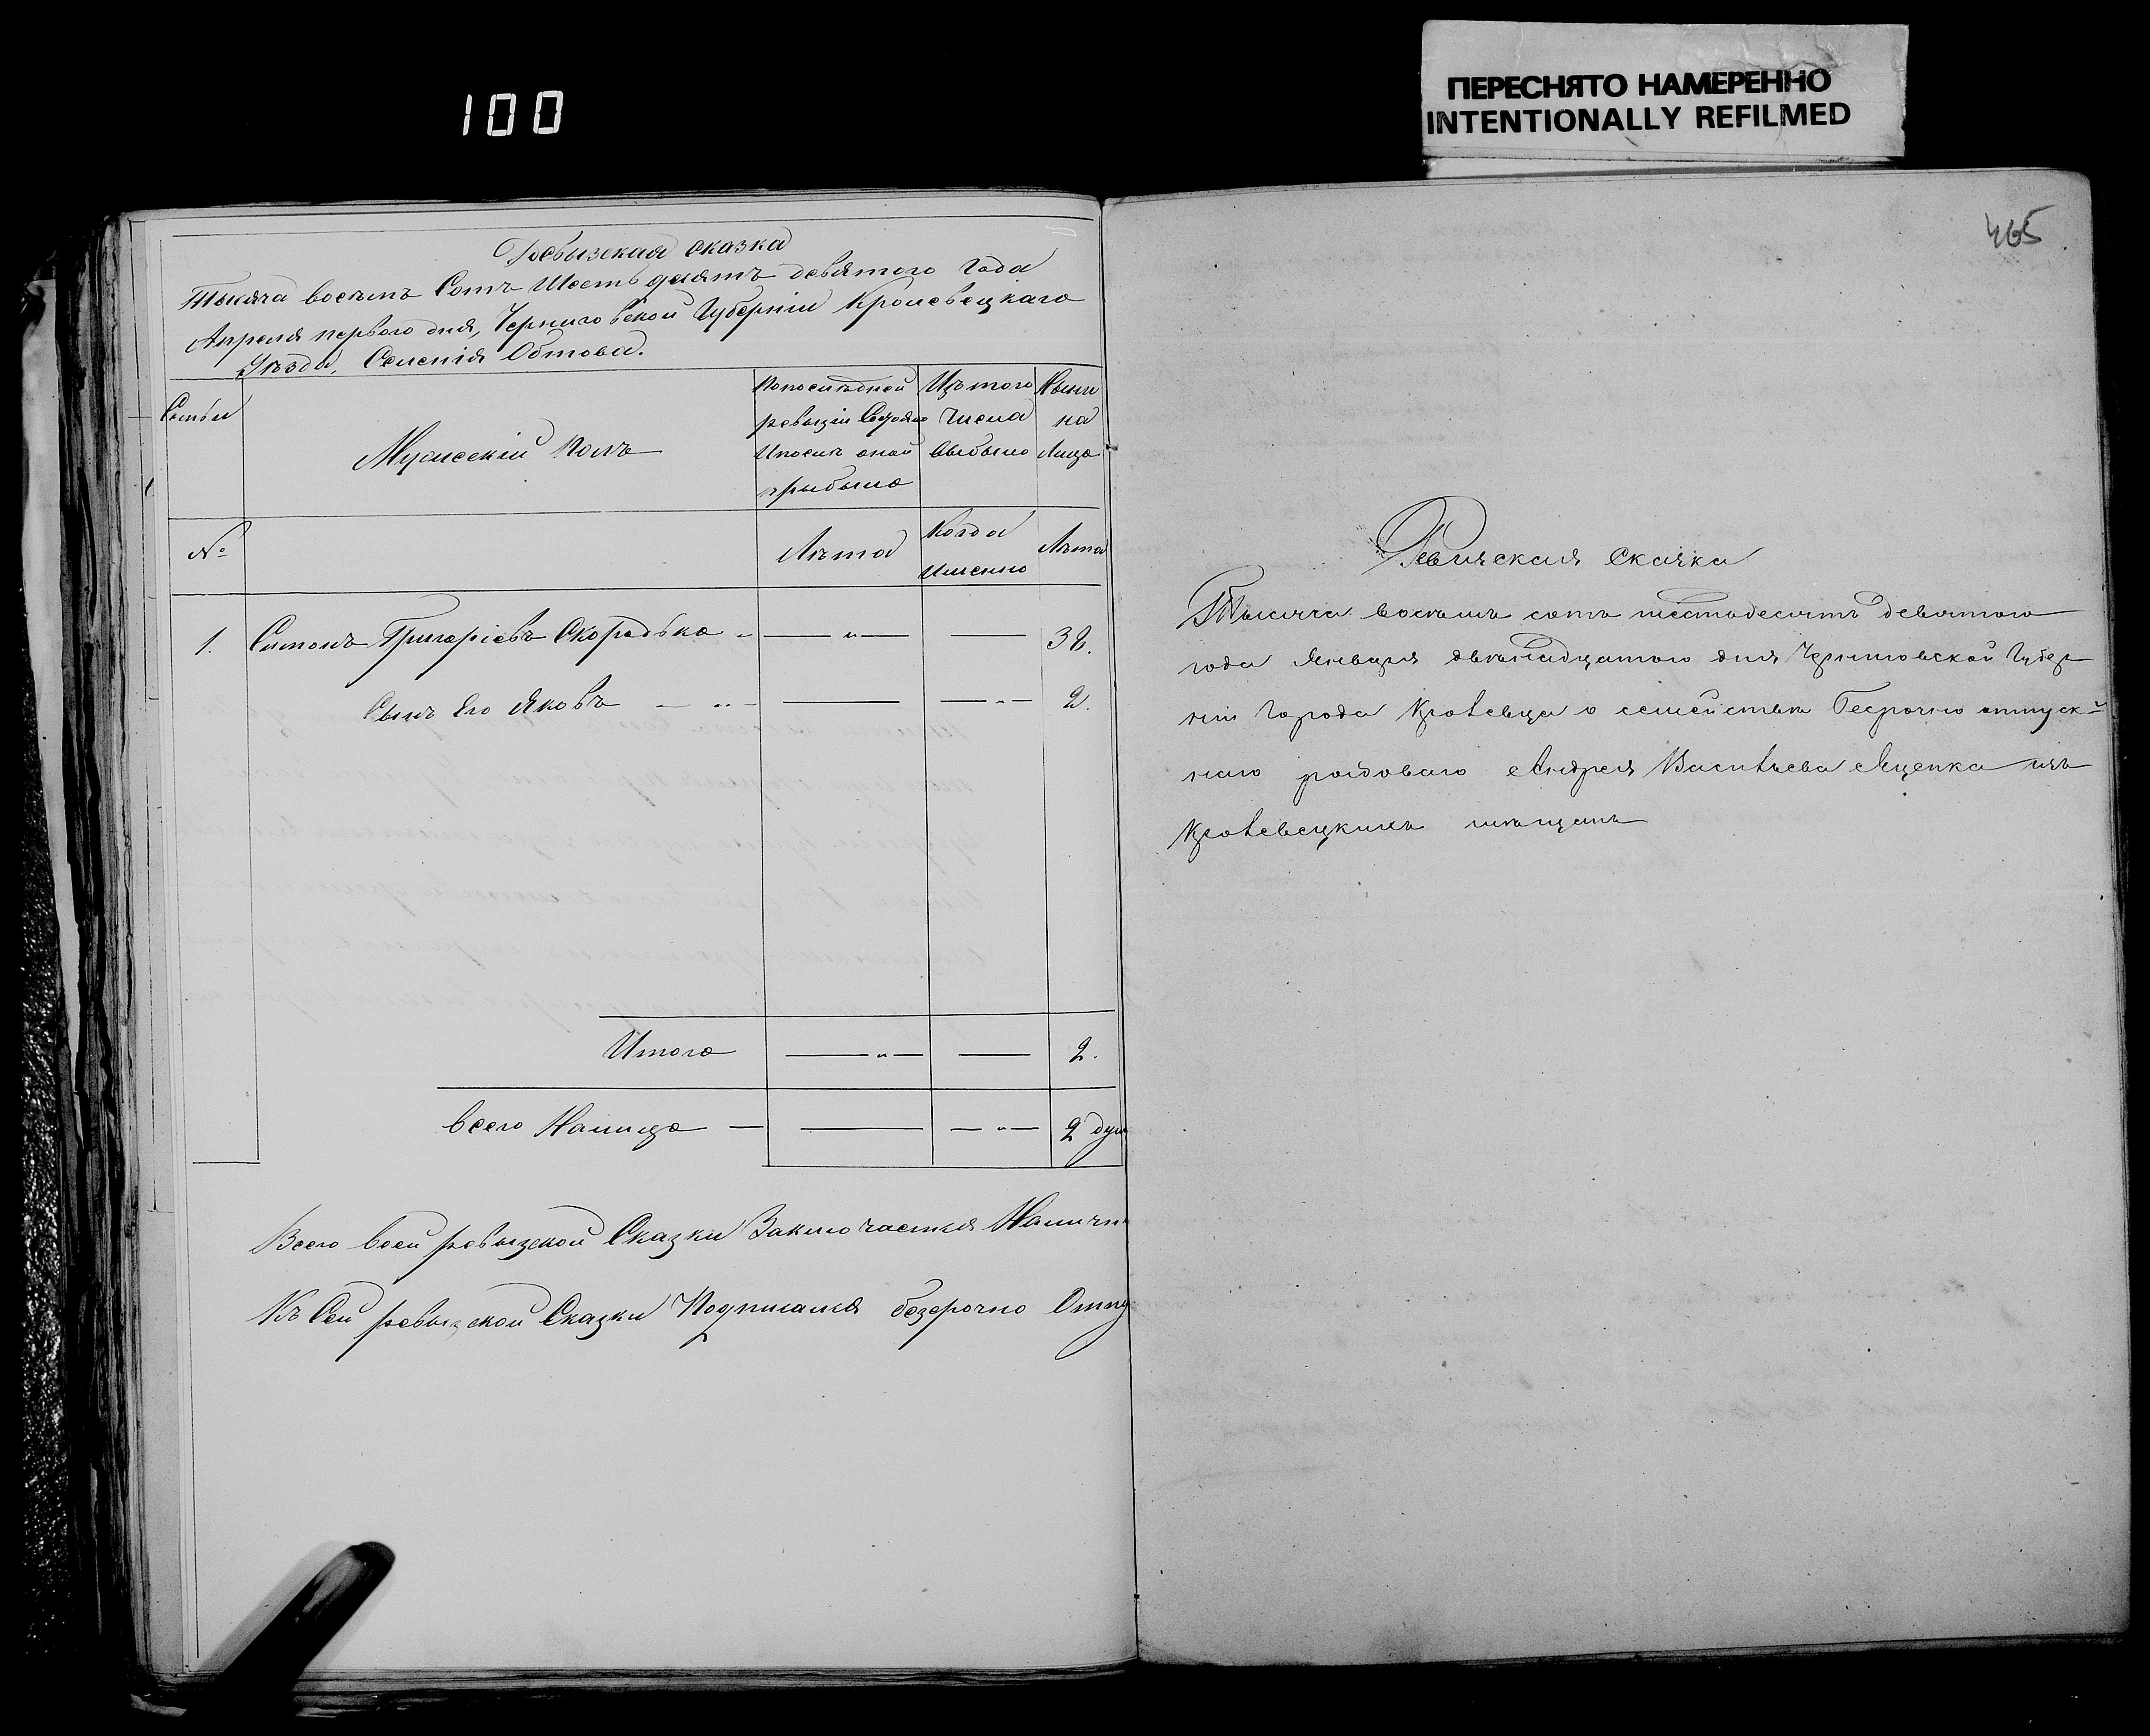 100
ПЕРЕСНЯТО НАМЕРЕННО
INTENTIONALLY REFILMED
Ревизская сказка
Тысяча восемъ Сотъ Шестьдесятъ девятого Года
Апреля первого дня, Черниговской Губерніи Кролевецкаго
Уѣзда, Селенія Обтова.
Семьи
Мужескій полъ
Попослѣдней
ревизіи Состояло
Ипослѣ оной
прибыло
Изъ того
Числа
Выбыло
Ныне
на
Лицо
№
Лѣта
Когда
Именно
Лѣта
1. Симонъ Григоріевъ Скорадько 38.
Сынъ Его Яковъ 2.
Итого 2.
Всего Налицо 2 душ
Всего всей ревизской Сказки Заключается Наличн
Къ Сей ревизской Сказки Подписался безсрочно Отпу
465
Ревизская Сказка
Тысяча восемъ сотъ шестьдесятъ девятого
года Января двѣнадцатого дня Черниговской Губер
ніи Города Кролевца о семействѣ Безсрочно отпуск-
наго рядоваго Андрея Васильева Яценка изъ
Кролевецкихъ мѣщанъ